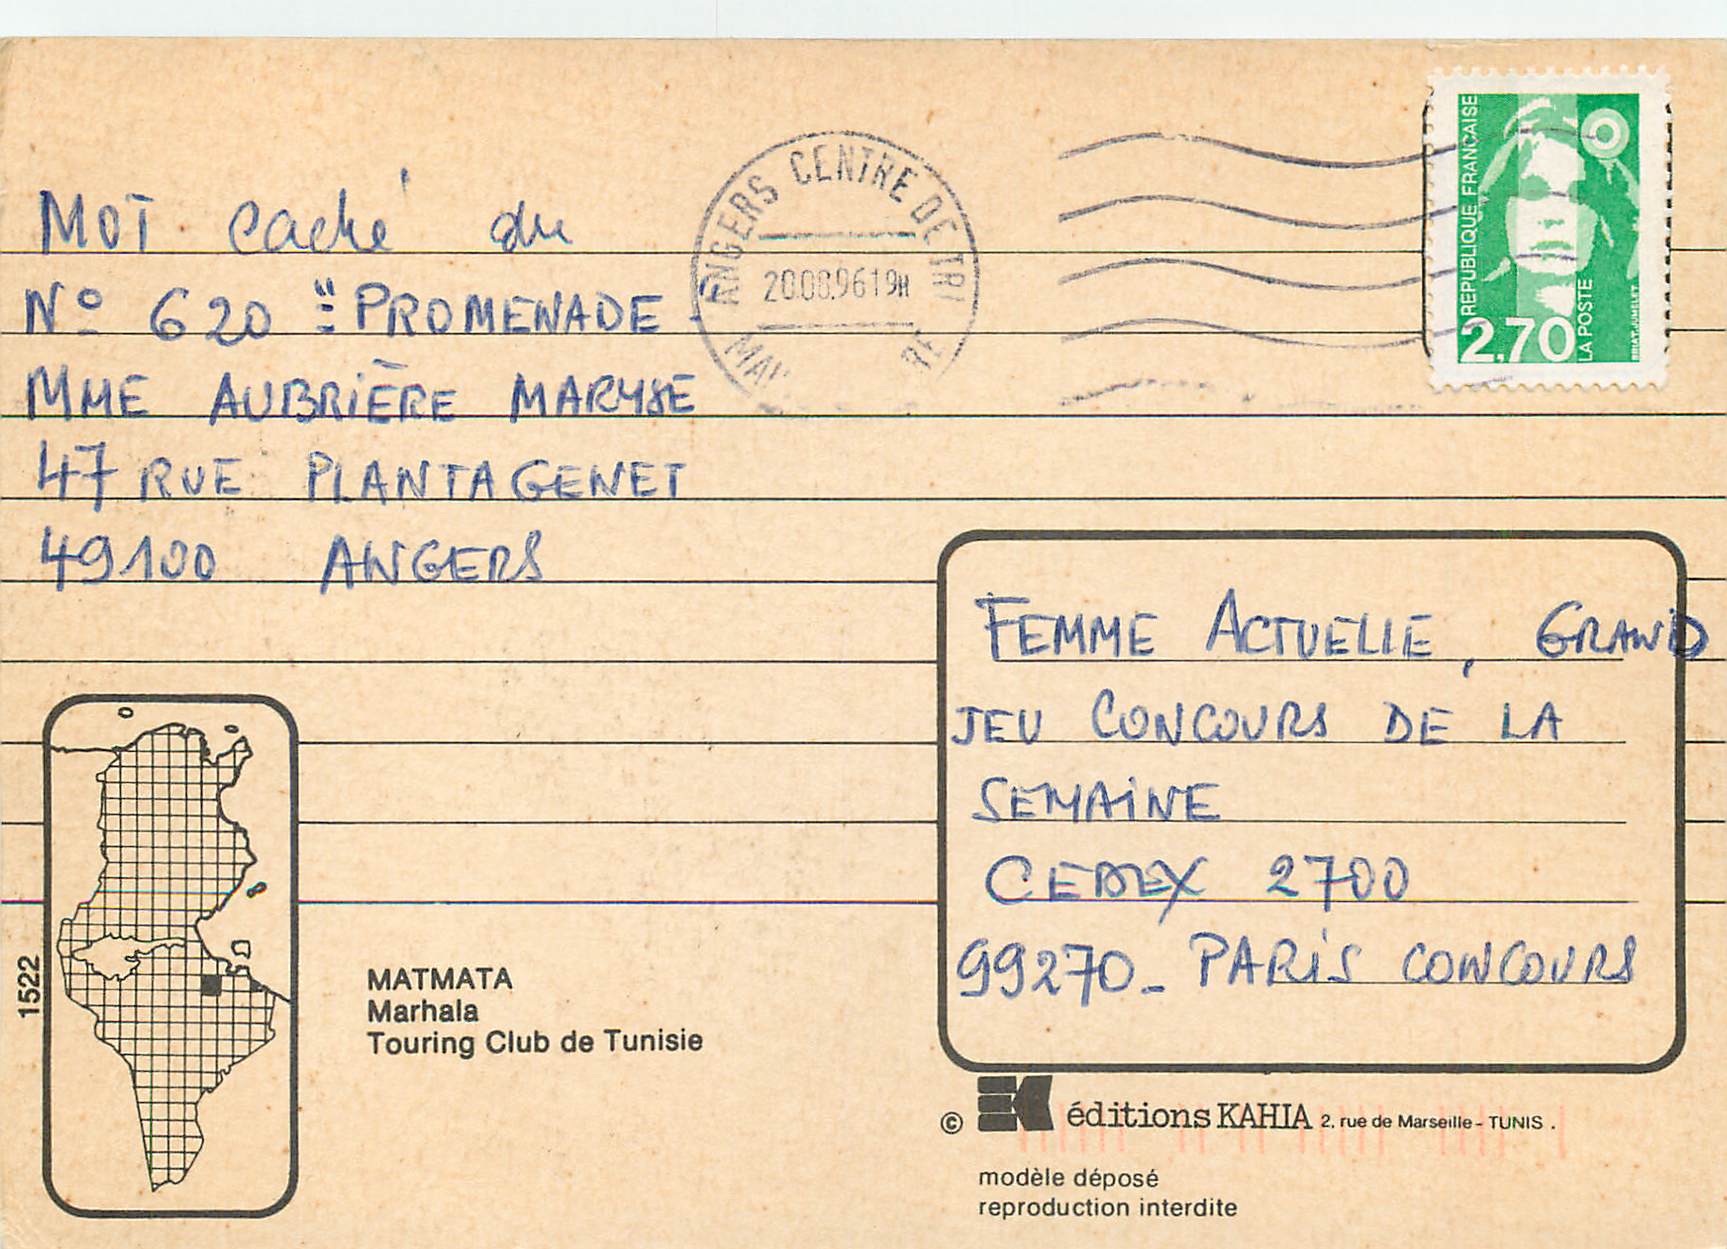 MOT caché du
Nº 620 "PROMENADE"
MME AUBRIÈRE MARYSE
47 RUE PLANTAGENET
49100 ANGERS
ANGERS CENTRE DE TRI
20.08.96 19H
REPUBLIQUE FRANÇAISE
2,70
LA POSTE
BRIAT.JUMELET
FEMME ACTUELLE, GRAND
JEU CONCOURS DE LA
SEMAINE
CEDEX 2700
99270_ PARIS CONCOURS
1522
MATMATA
Marhala
Touring Club de Tunisie
© éditions KAHIA 2, rue de Marseille - TUNIS.
modèle déposé
reproduction interdite